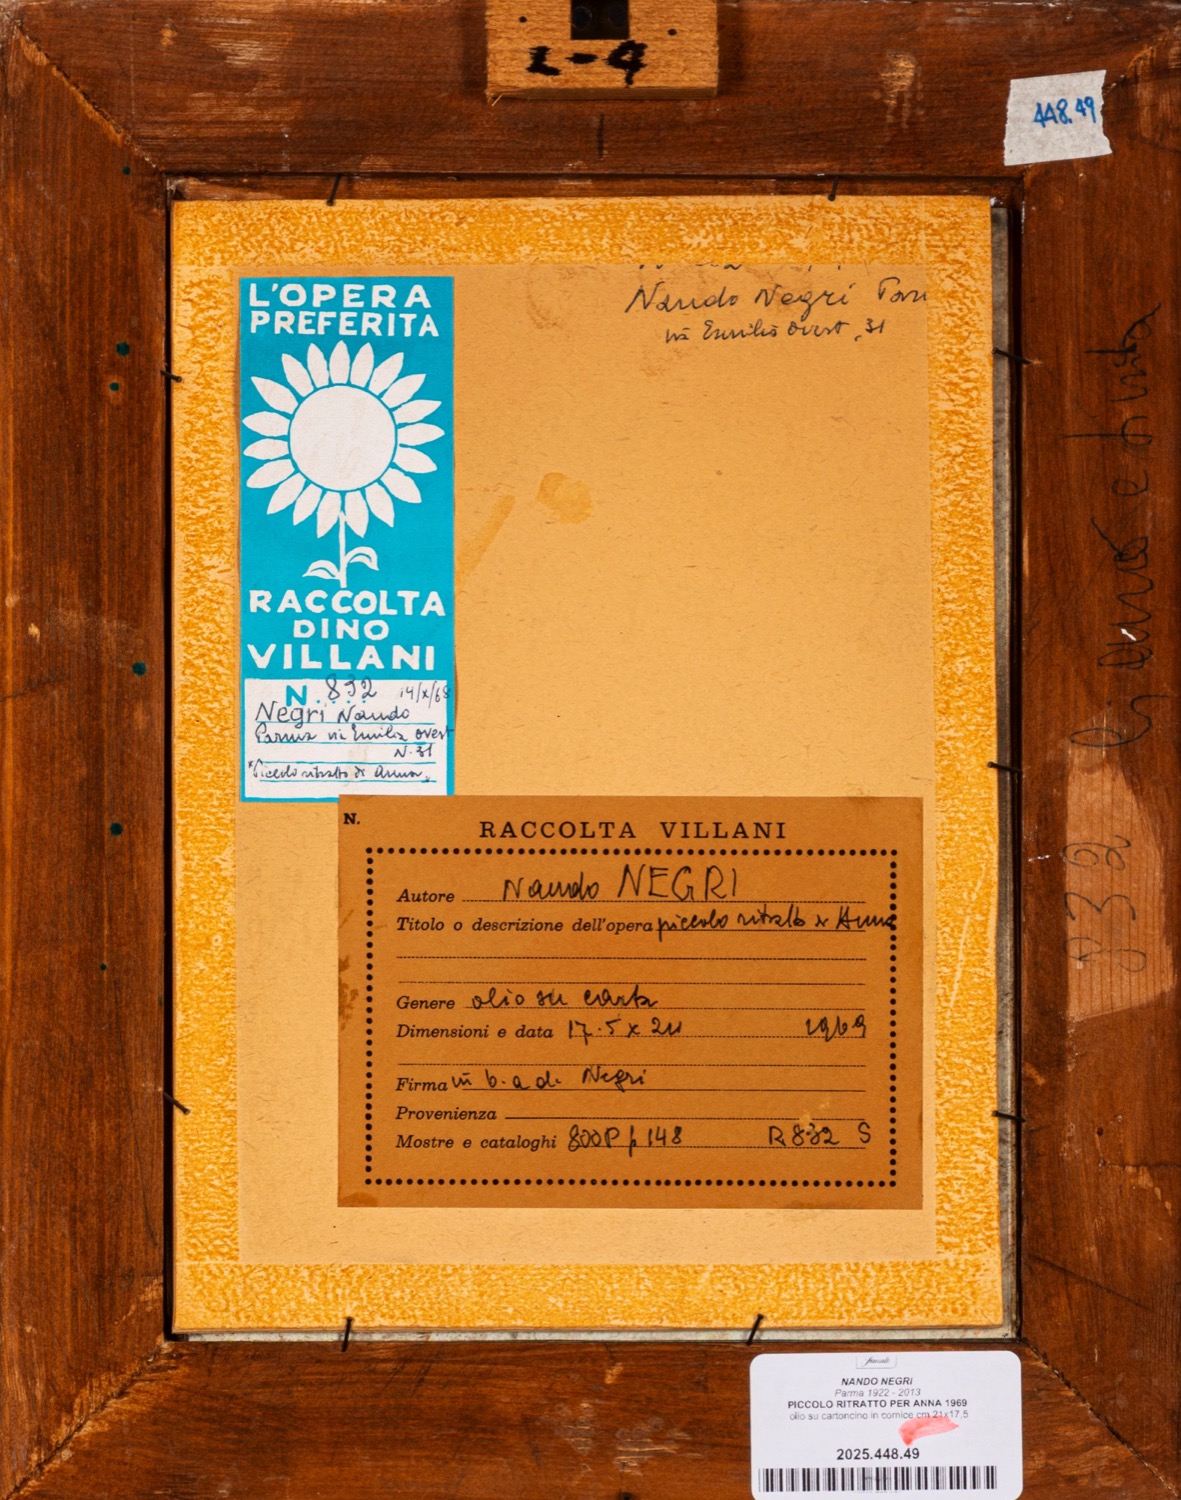 L-4
448.49
Nando Negri
via Emilia ovest, 31
L'OPERA
PREFERITA
RACCOLTA
DINO
VILLANI
N. 832 14/X/68
Negri Nando
Parma via Emilia ovest
N. 31
"Piccolo ritratto di Anna"
N.
RACCOLTA VILLANI
Autore Nando NEGRI
Titolo o descrizione dell'opera piccolo ritratto di Anna
Genere olio su carta
Dimensioni e data 17.5 x 21 1969
Firma in b. a d. Negri
Provenienza
Mostre e cataloghi 800P p 148 R832 S
832
NANDO NEGRI
Parma 1922 - 2013
PICCOLO RITRATTO PER ANNA 1969
olio su cartoncino in cornice cm 21x17,5
2025.448.49